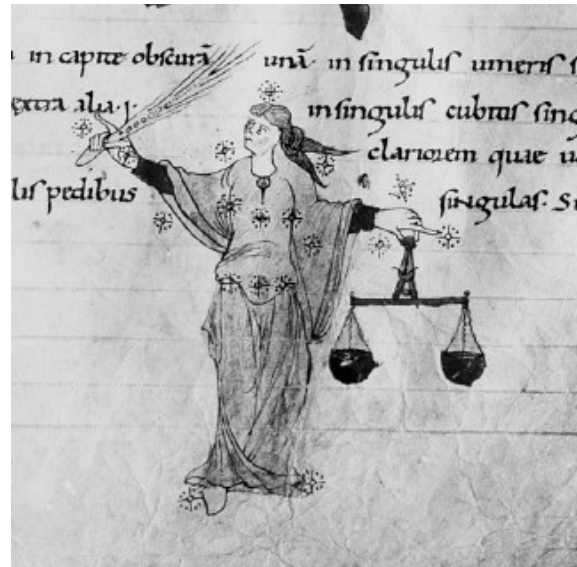 in capite obscurā unā in singulis umeris s
extra alia · j · in singulis cubitis sing
clariorem quae u
lis pedibus singulas · S